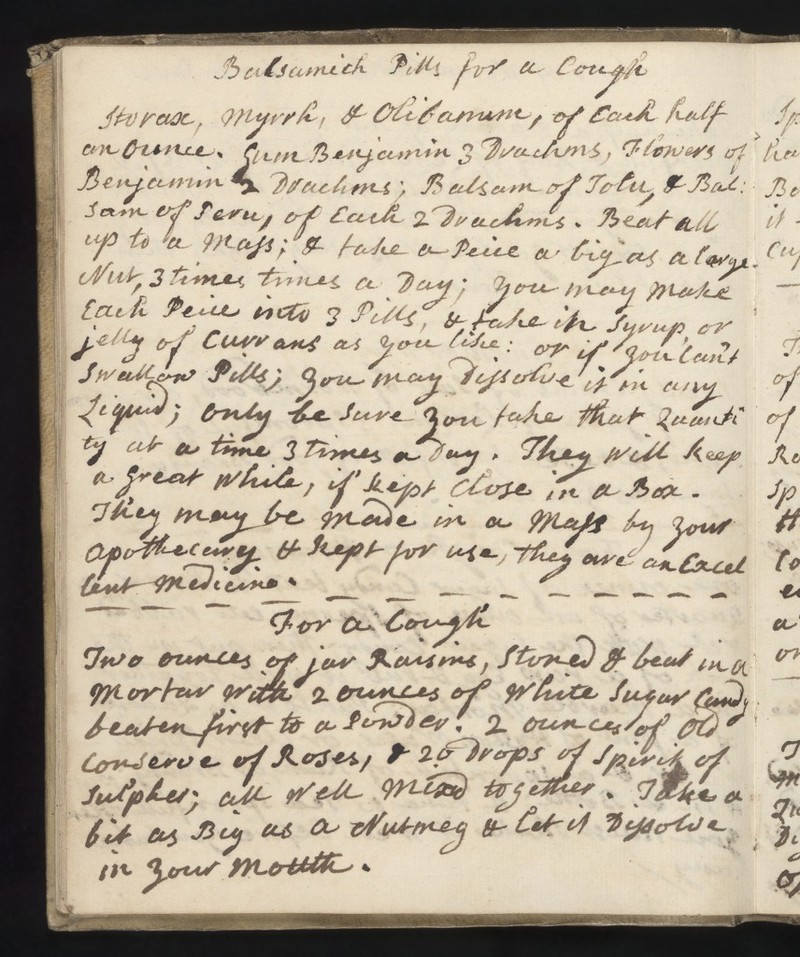 Balsamick Pills for a Cough
Storax, Myrrh, & Olibanum, of Each half
an Ounce. Gum Benjamin 3 Drachms, Flowers of
Benjamin 2 Drachms; Balsam of Tolu, & Bal:
sam of Peru, of Each 2 Drachms. Beat all
up to a Mass; & take a Peice a big as a large
Nut, 3 times times a Day; you may make
Each Peice into 3 Pills, & take in Syrup, or
jelly of Currans as you like: or if you Can't
Swallow Pills; you may Dissolve it in any
Liquid; only be sure you take that Quanti
ty at a time 3 times a Day. They will keep
a great while, if kept Close in a Box.
They may be made in a Mass by your
Apothecary & kept for use, they are an Excel
lent Medicine.
For a Cough
Two ounces of jar Raisins, Stoned & beat in a
Mortar with 2 ounces of White Sugar Candy
beaten first to a Powder. 2 ounces of Old
Conserve of Roses, & 20 Drops of Spirit of
Sulpher; all well Mixd together. Take a
bit as Big as a Nutmeg & let it Dissolve
in your Mouth.
Sp
ha
Ba
it
Cup
of
of
Ro
Sp
th
Co
a
or